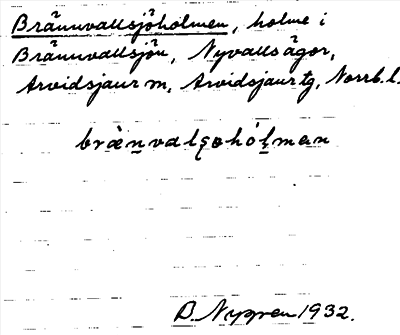 Brännvallsjöholmen, holme i
Brännvallsjön, Nyvalls ägor,
Arvidsjaur m, Arvidsjaur tg, Norrb. l.
bränvalsøhólman
B. Nygren 1932.